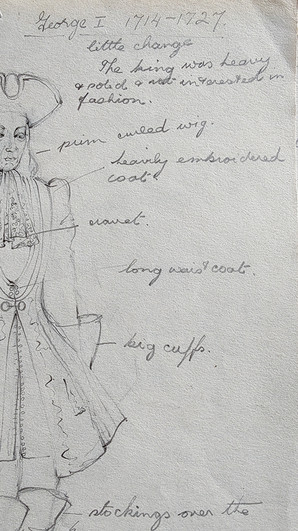 George I 1714-1727.
little change
The king was heavy
& solid & not interested in
fashion.
prim curled wig.
heavily embroidered
coat.
cravat.
long waist coat.
big cuffs.
stockings over the